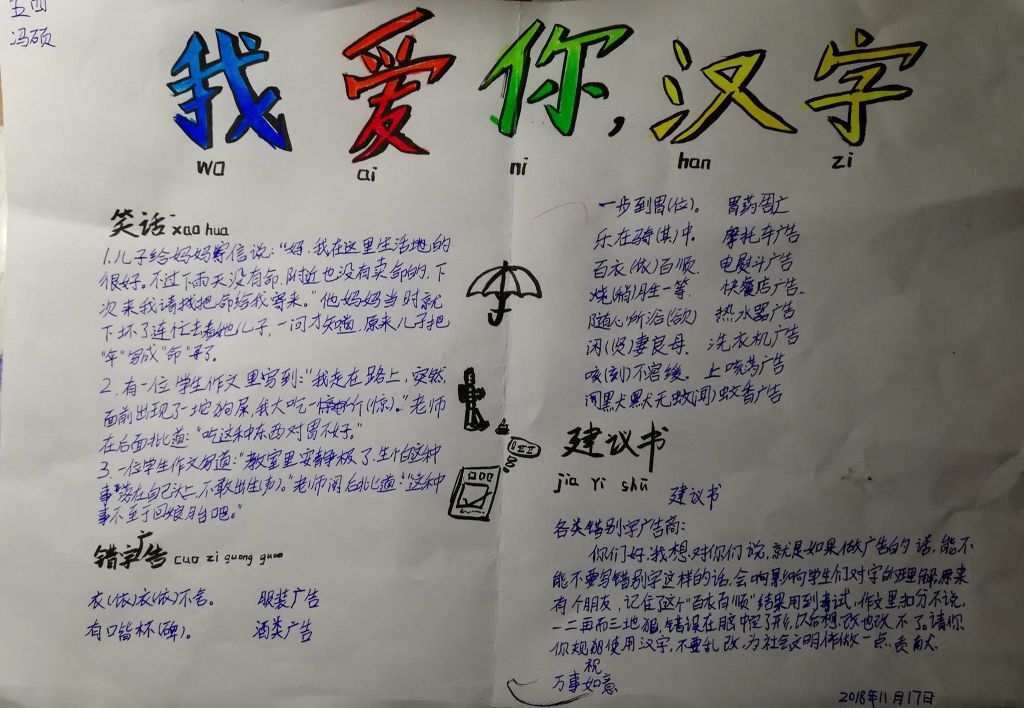 五四
冯硕
我爱你,汉字
wo ai ni han zi
笑话 xao hua
1.儿子给妈妈寄信说:“妈,我在这里生活地的
很好。不过下雨天没有命,附近也没有卖命的,下
次来我请找把命给我寄来。”他妈妈当时就
下坏了连忙去看她儿子,一问才知道,原来儿子把
“伞”写成“命”字了。
2.有一位学生作文里写到:“我走在路上,突然,
面前出现了一坨狗屎,我大吃一斤(惊)。”老师
在后面批道:“吃这种东西对胃不好。”
3.一位学生作文写道:“教室里安静极了,生怕这种
事落在自己头上,不敢出生(声)。”老师阅后批道:“这种
事不至于回娘胎吧。”
错字广告 cuo zi guang guao
衣(依)衣(依)不舍。 服装广告
有口皆杯(碑)。 酒类广告
一步到胃(位)。 胃药广
乐在骑(其)中。 摩托车广告
百衣(依)百顺. 电熨斗广告
烧(稍)胜一等. 快餐店广告.
随心所浴(欲) 热水器广告
闲(贤)妻良母. 洗衣机广告
咳(刻)不容缓。 止咳药广告
默默无蚊(闻)蚊香广告
建议书
jia Yi shū
建议书
各类错别字广告商:
你们好,我想对你们说,就是如果做广告的话,能不
能不要写错别字这样的话,会响影响学生们对字的理解,原来
有个朋友,记住了这个“百衣百顺”结果用到考试,作文里扣分不说,
一二再而三地犯,错误在脑中定了形,以后想改也改不了,请你
你规范使用汉字,不要乱改,为社会文明作做一点贡献.
祝
万事如意
2018年11月17日